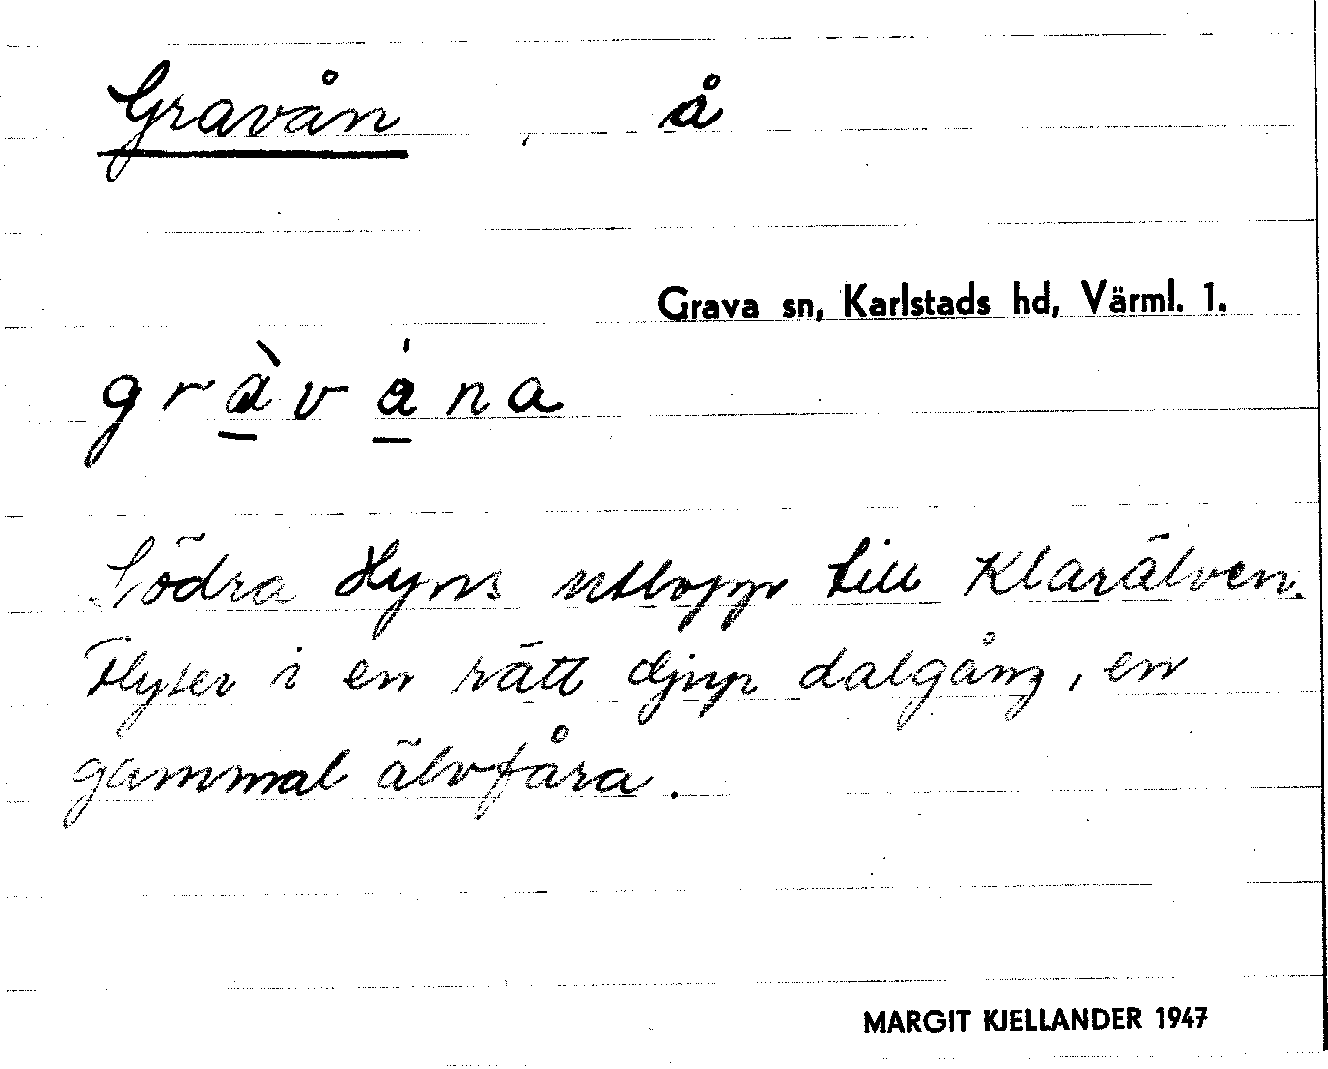 Gravån å
Grava sn, Karlstads hd, Värml. 1.
gràvána
Södra Hyns utlopp till Klarälven.
Flyter i en rätt djup dalgång, en
gammal älvfåra.
MARGIT KJELLANDER 1947